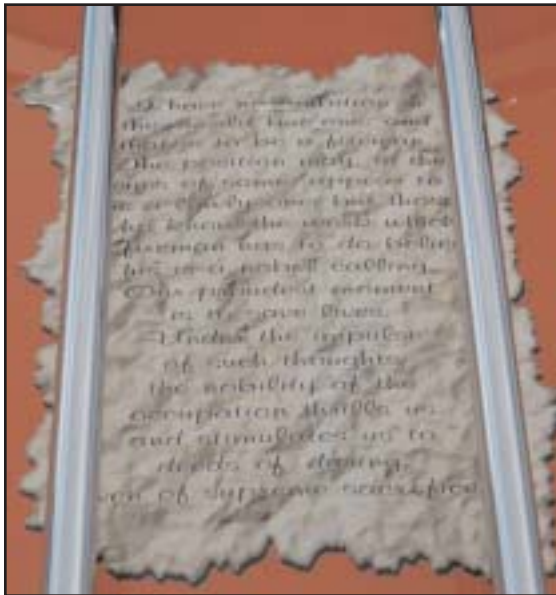 I have no ambition in
this world but one, and
that is to be a fireman.
The position may, in the
eyes of some, appear to
be a lowly one; but those
who know the work which
fireman has to do believe
his is a noble calling.
Our proudest moment
is to save lives.
Under the impulse
of such thoughts,
the nobility of the
occupation thrills us
and stimulates us to
deeds of daring,
even of supreme sacrifice